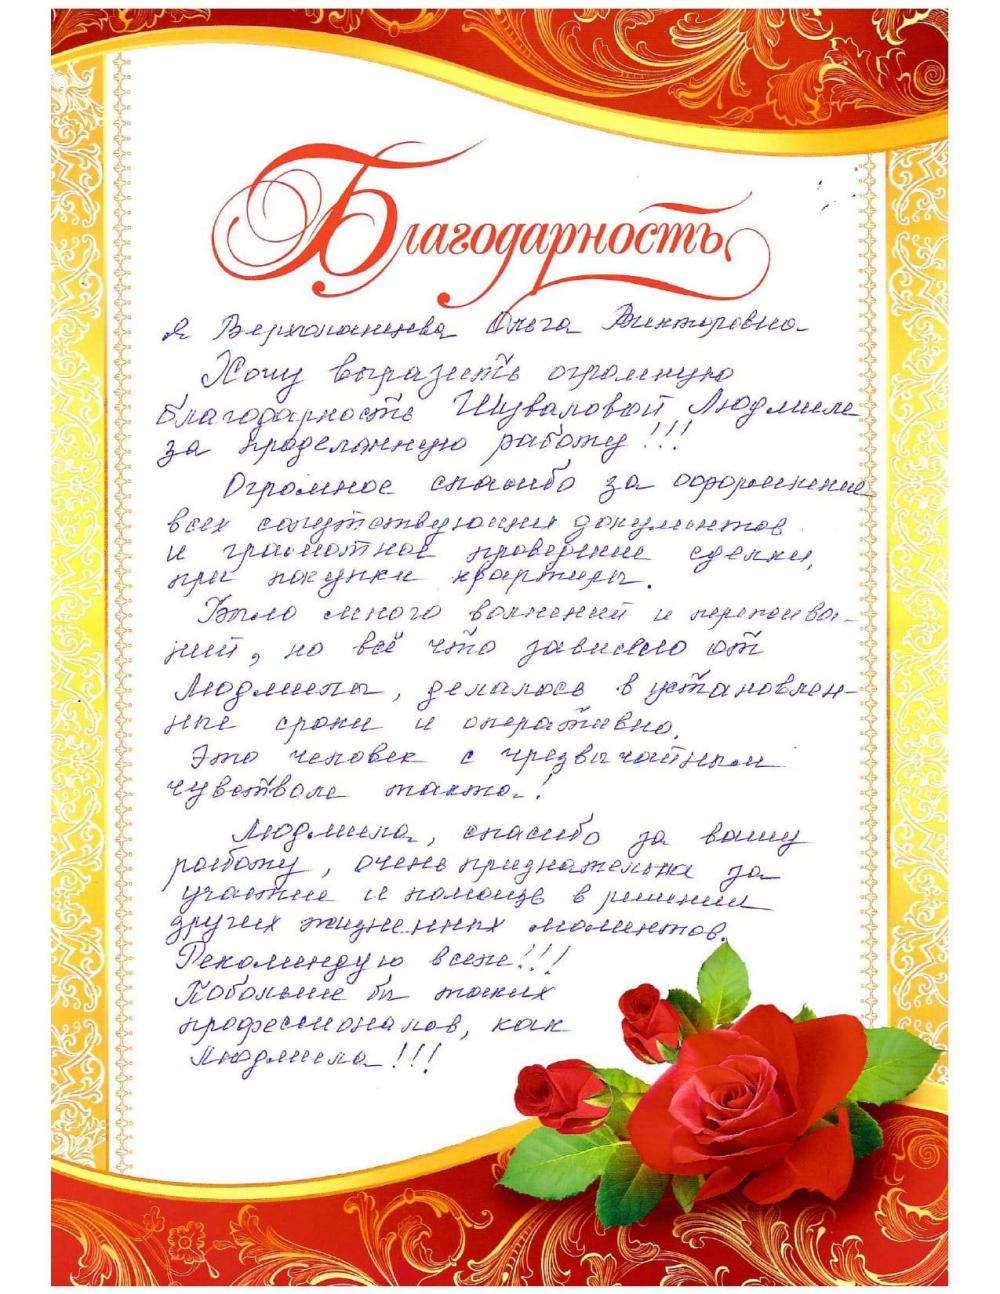 Благодарность
я Верхоланцева Ольга Викторовна
Хочу выразить огромную
благодарность Шуваловой Людмиле
за проделанную работу!!!
Огромное спасибо за оформление
всех сопутствующих документов
и грамотное проведение сделки,
при покупки квартиры.
Было много волнений и пережива-
ний, но всё что зависило от
Людмилы, делалось в установлен-
ные сроки и оперативно.
Это человек с чрезвычайным
чувством такта!
Людмила, спасибо за вашу
работу, очень признательна за
участие и помощь в решении
других жизненных моментов.
Рекомендую всем!!!
Побольше бы таких
профессионалов, как
Людмила!!!